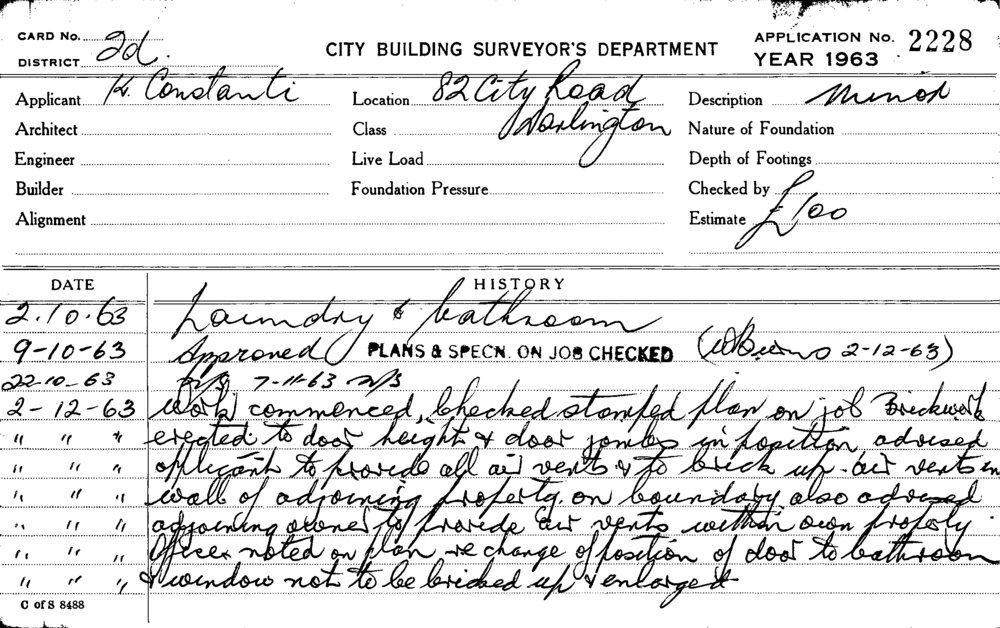 CARD No. 2d.
DISTRICT
CITY BUILDING SURVEYOR'S DEPARTMENT
APPLICATION No. 2228
YEAR 1963
Applicant K. Constanti
Location 82 City Road
Darlington
Description Minor
Architect
Class
Nature of Foundation
Engineer
Live Load
Depth of Footings
Builder
Foundation Pressure
Checked by
Alignment
Estimate £100
DATE HISTORY
2.10.63 Laundry & bathroom
9-10-63 Approved PLANS & SPECN. ON JOB CHECKED 2-12-63)
22-10-63 N/S 7-11-63 N/S
2-12-63 Work commenced, checked stamped plan on job Brickwork
" " " erected to door height & door jambs in position, advised
" " " applicant to provide all air vents & to brick up air vents in
" " " wall of adjoining property on boundary also advised
" " " adjoining owner to provide air vents within own property
" " " Officer noted on plan re change of position of door to bathroom
" " " & window not to be bricked up & enlarged
C of S 8488